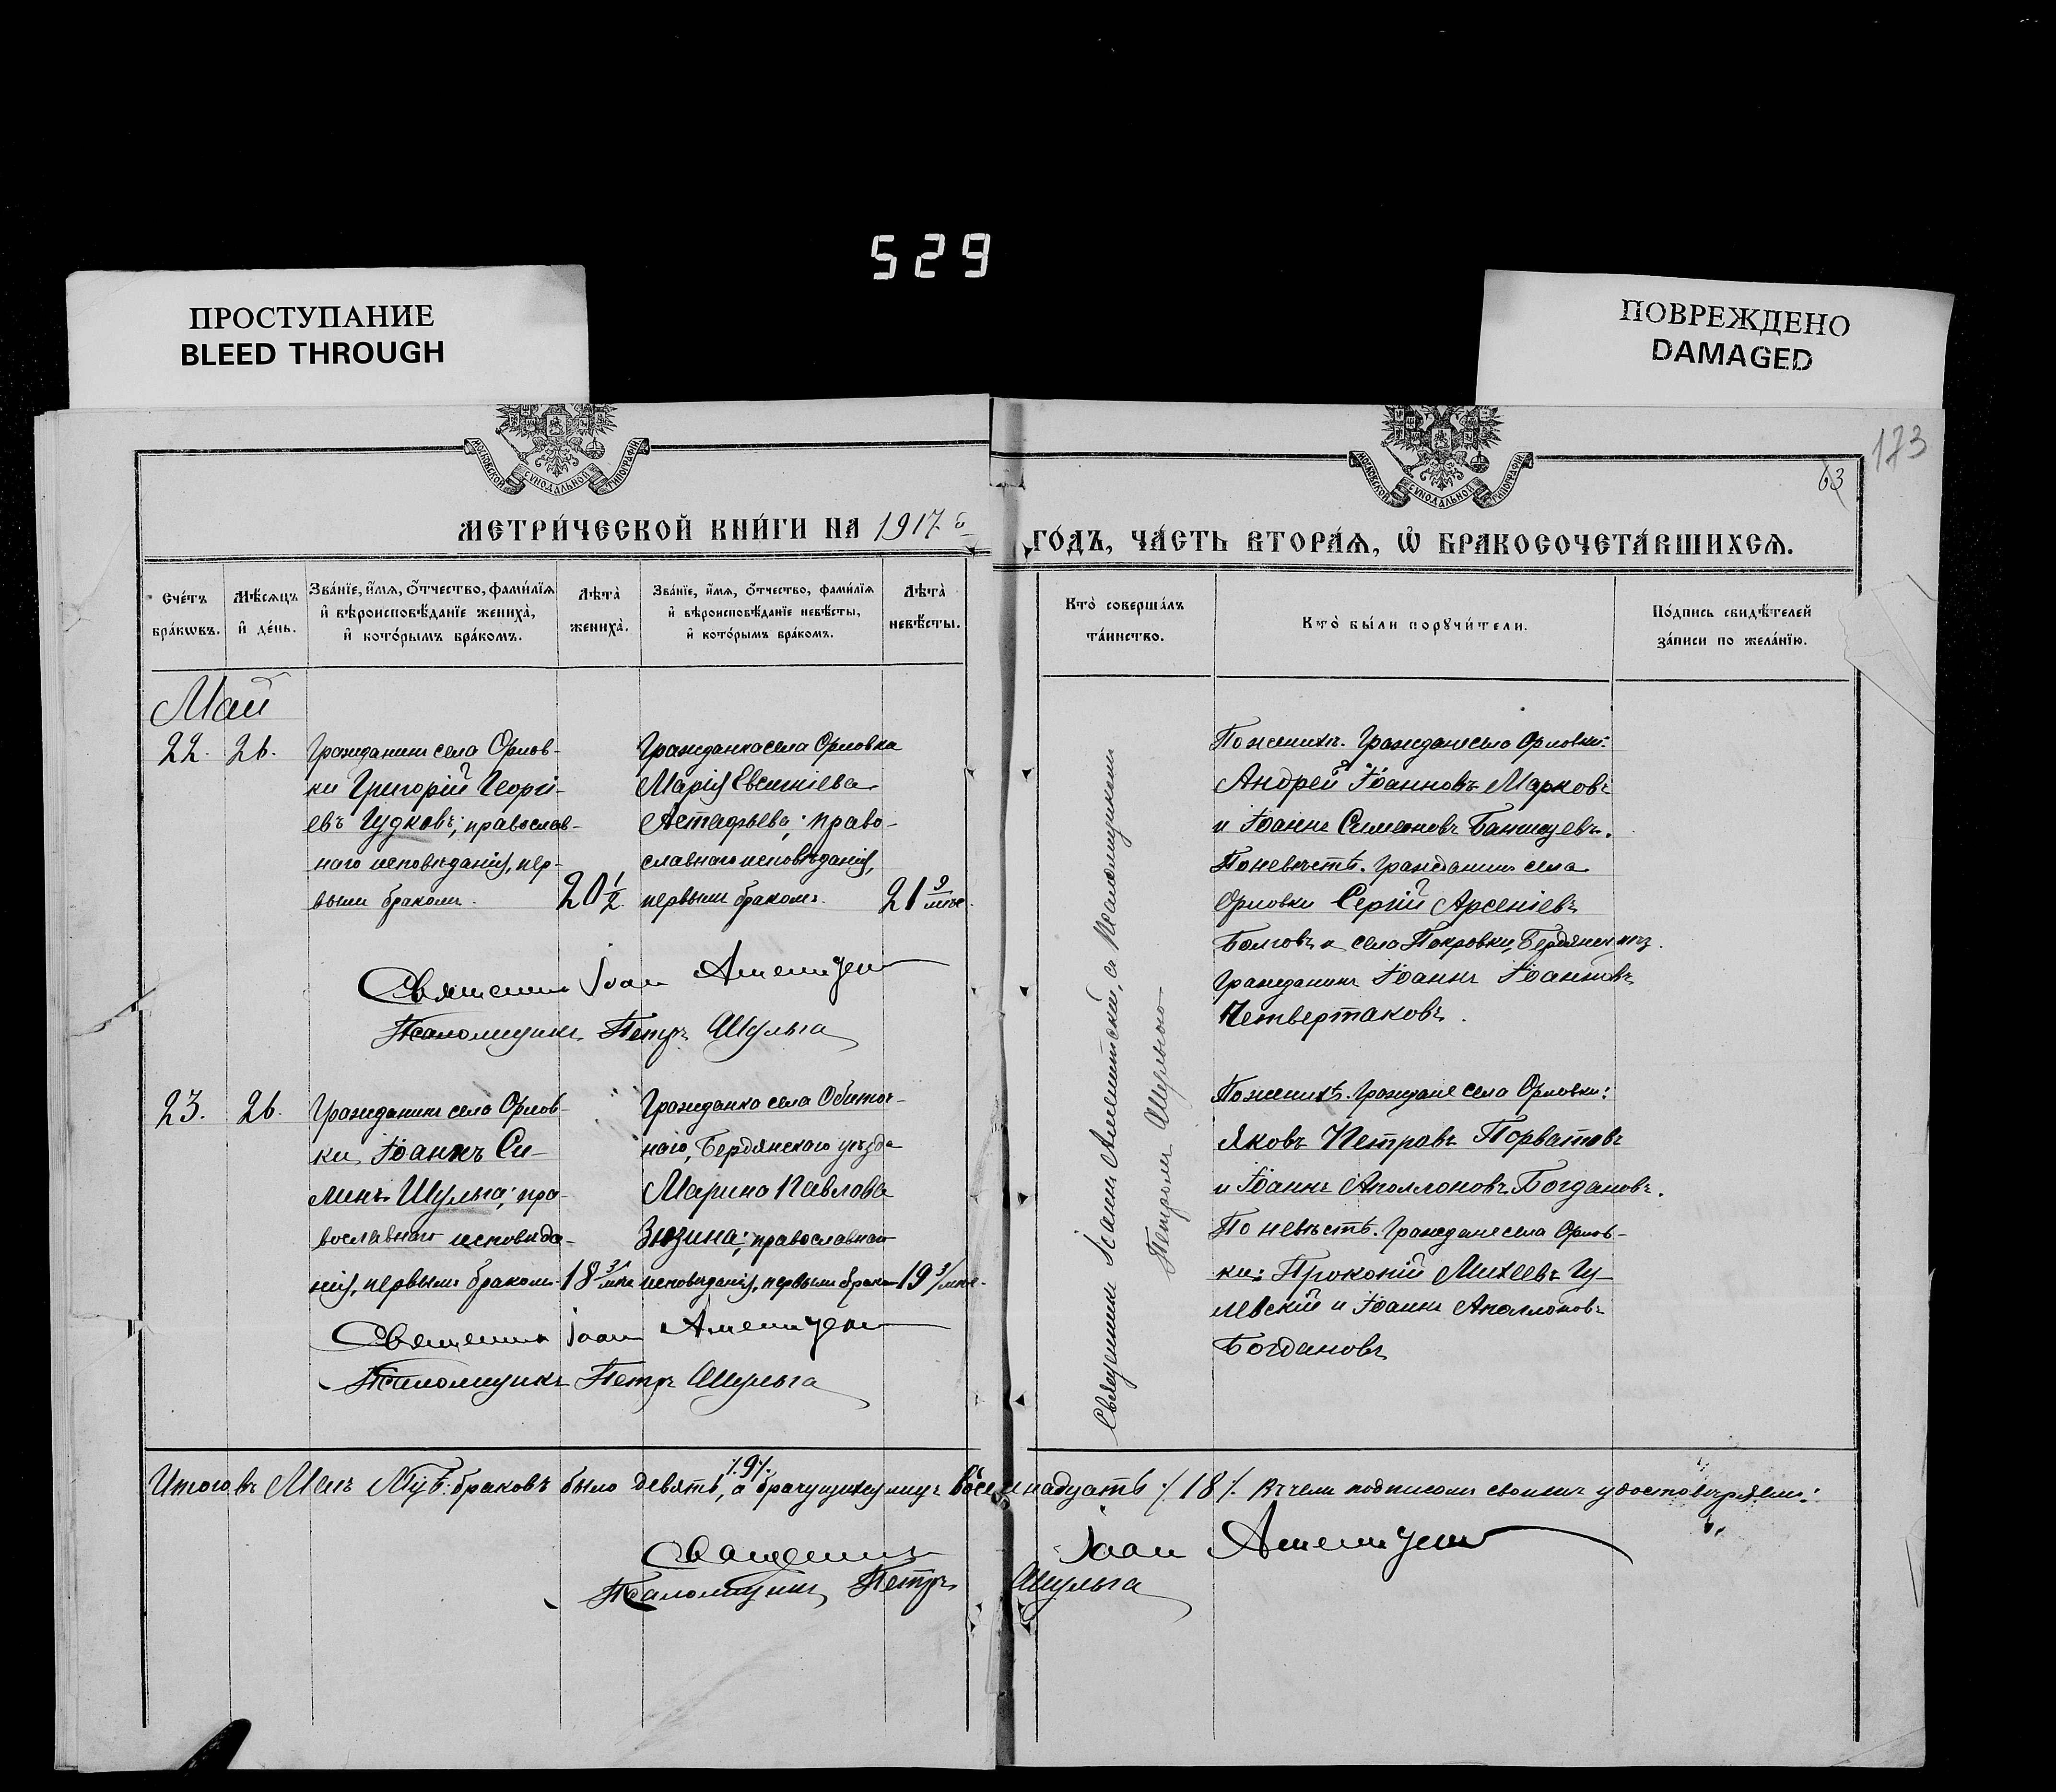 529
ПРОСТУПАНИЕ
BLEED THROUGH
ПОВРЕЖДЕНО
DAMAGED
МОСКОВСКОЙ СѴНОДАЛЬНОЙ ТИПОГРАФІИ
МОСКОВСКОЙ СѴНОДАЛЬНОЙ ТИПОГРАФІИ
173
63
МЕТРИ́ЧЕСКОЙ КНИ́ГИ НА 1917
ГО́ДЪ, ЧА́СТЬ ВТОРА́Ѧ, Ѡ҆ БРАКОСОЧЕТА́ВШИХСѦ.
Сче́тъ бра́кѡвъ.
Мѣ́сѧцъ и҆ де́нь.
Зва́нїе, и҆́мѧ, ѻ҆́тчество, фами́лїѧ и҆ вѣроисповѣ́данїе жениха̀, и҆ кото́рымъ бра́комъ.
Лѣта̀ жениха̀.
Зва́нїе, и҆́мѧ, ѻ҆́тчество, фами́лїѧ и҆ вѣроисповѣ́данїе невѣ́сты, и҆ кото́рымъ бра́комъ.
Лѣта̀ невѣ́сты.
Кто̀ соверша́лъ та́инство.
Кто̀ бы́ли порꙋчи́тели.
По́дпись свидѣ́телей за́писи по жела́нїю.
Май
22. 26.
Гражданинъ села Орлов-
ки Григорій Георгі-
евъ Гудковъ; православ-
наго исповѣданія, пер-
вымъ бракомъ.
20 1/2.
Гражданка села Орловка
Марія Евсигніева
Астафьева; право-
славнаго исповѣданія,
первымъ бракомъ.
21 9/мѣс.
Священникъ Іоан
Псаломщикъ Петръ Шульга
По женихѣ. Граждане села Орловки:
Андрей Іоанновъ Марковъ
и Іоаннъ Симеоновъ
По невѣстѣ. Гражданинъ села
Орловки Сергій Арсеніевъ
Болговъ и села Покровки, Бердянск. уѣз.
Гражданинъ Іоаннъ Іоанновъ
Четвертаковъ.
23. 26.
Гражданинъ села Орлов-
ки Іоаннъ Си-
линъ Шульга; пра-
вославнаго исповѣда-
нія, первымъ бракомъ.
18 3/мѣс.
Гражданка села Обиточ-
наго, Бердянскаго уѣзда
Марина Павлова
Зюзина; православнаго
исповѣданія, первымъ бракомъ
19 3/мѣс.
Священникъ Іоан
Псаломщикъ Петръ Шульга
По женихѣ. Граждане села Орловки:
Яковъ Петровъ Порватовъ
и Іоаннъ Аполлоновъ Богдановъ.
По невѣстѣ. Граждане села Орлов-
ки: Прокопій Михеевъ Гу-
левскій и Іоаннъ Аполлоновъ
Богдановъ
Священникъ Іоаннъ съ Псаломщикомъ
Петромъ Шульгою
Итого въ Маѣ М-цѣ браковъ было девять /.9/., а брачущихся лицъ восемнадцать /.18/. Въ чемъ подписомъ своимъ удостовѣряемъ:
Священникъ Іоан
Псаломщикъ Петръ Шульга